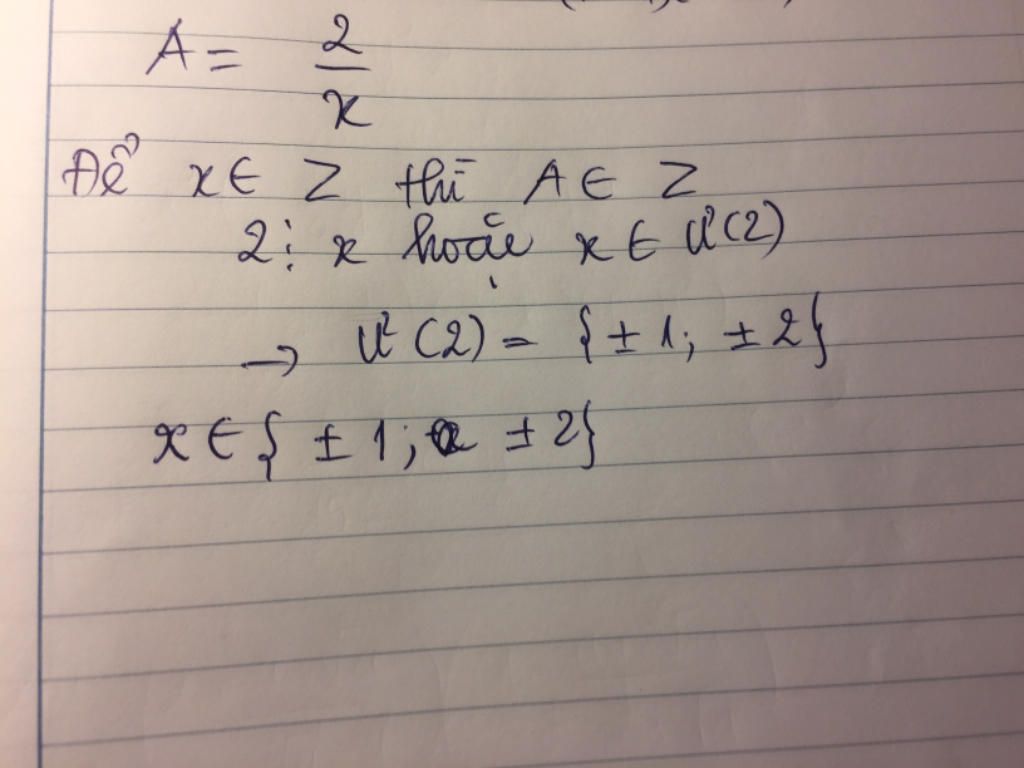 A = 2/x
Để x ∈ Z thì A ∈ Z
2 ⋮ x hoặc x ∈ Ư(2)
→ Ư(2) = {±1; ±2}
x ∈ {±1; ±2}